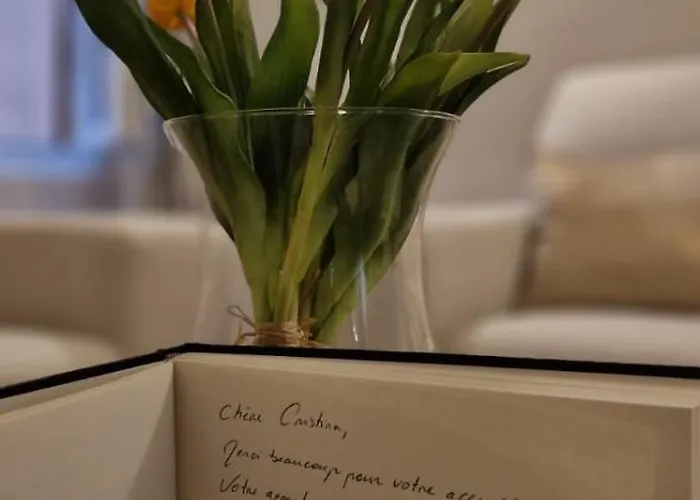 Chère Cristina,
Merci beaucoup pour votre
Votre